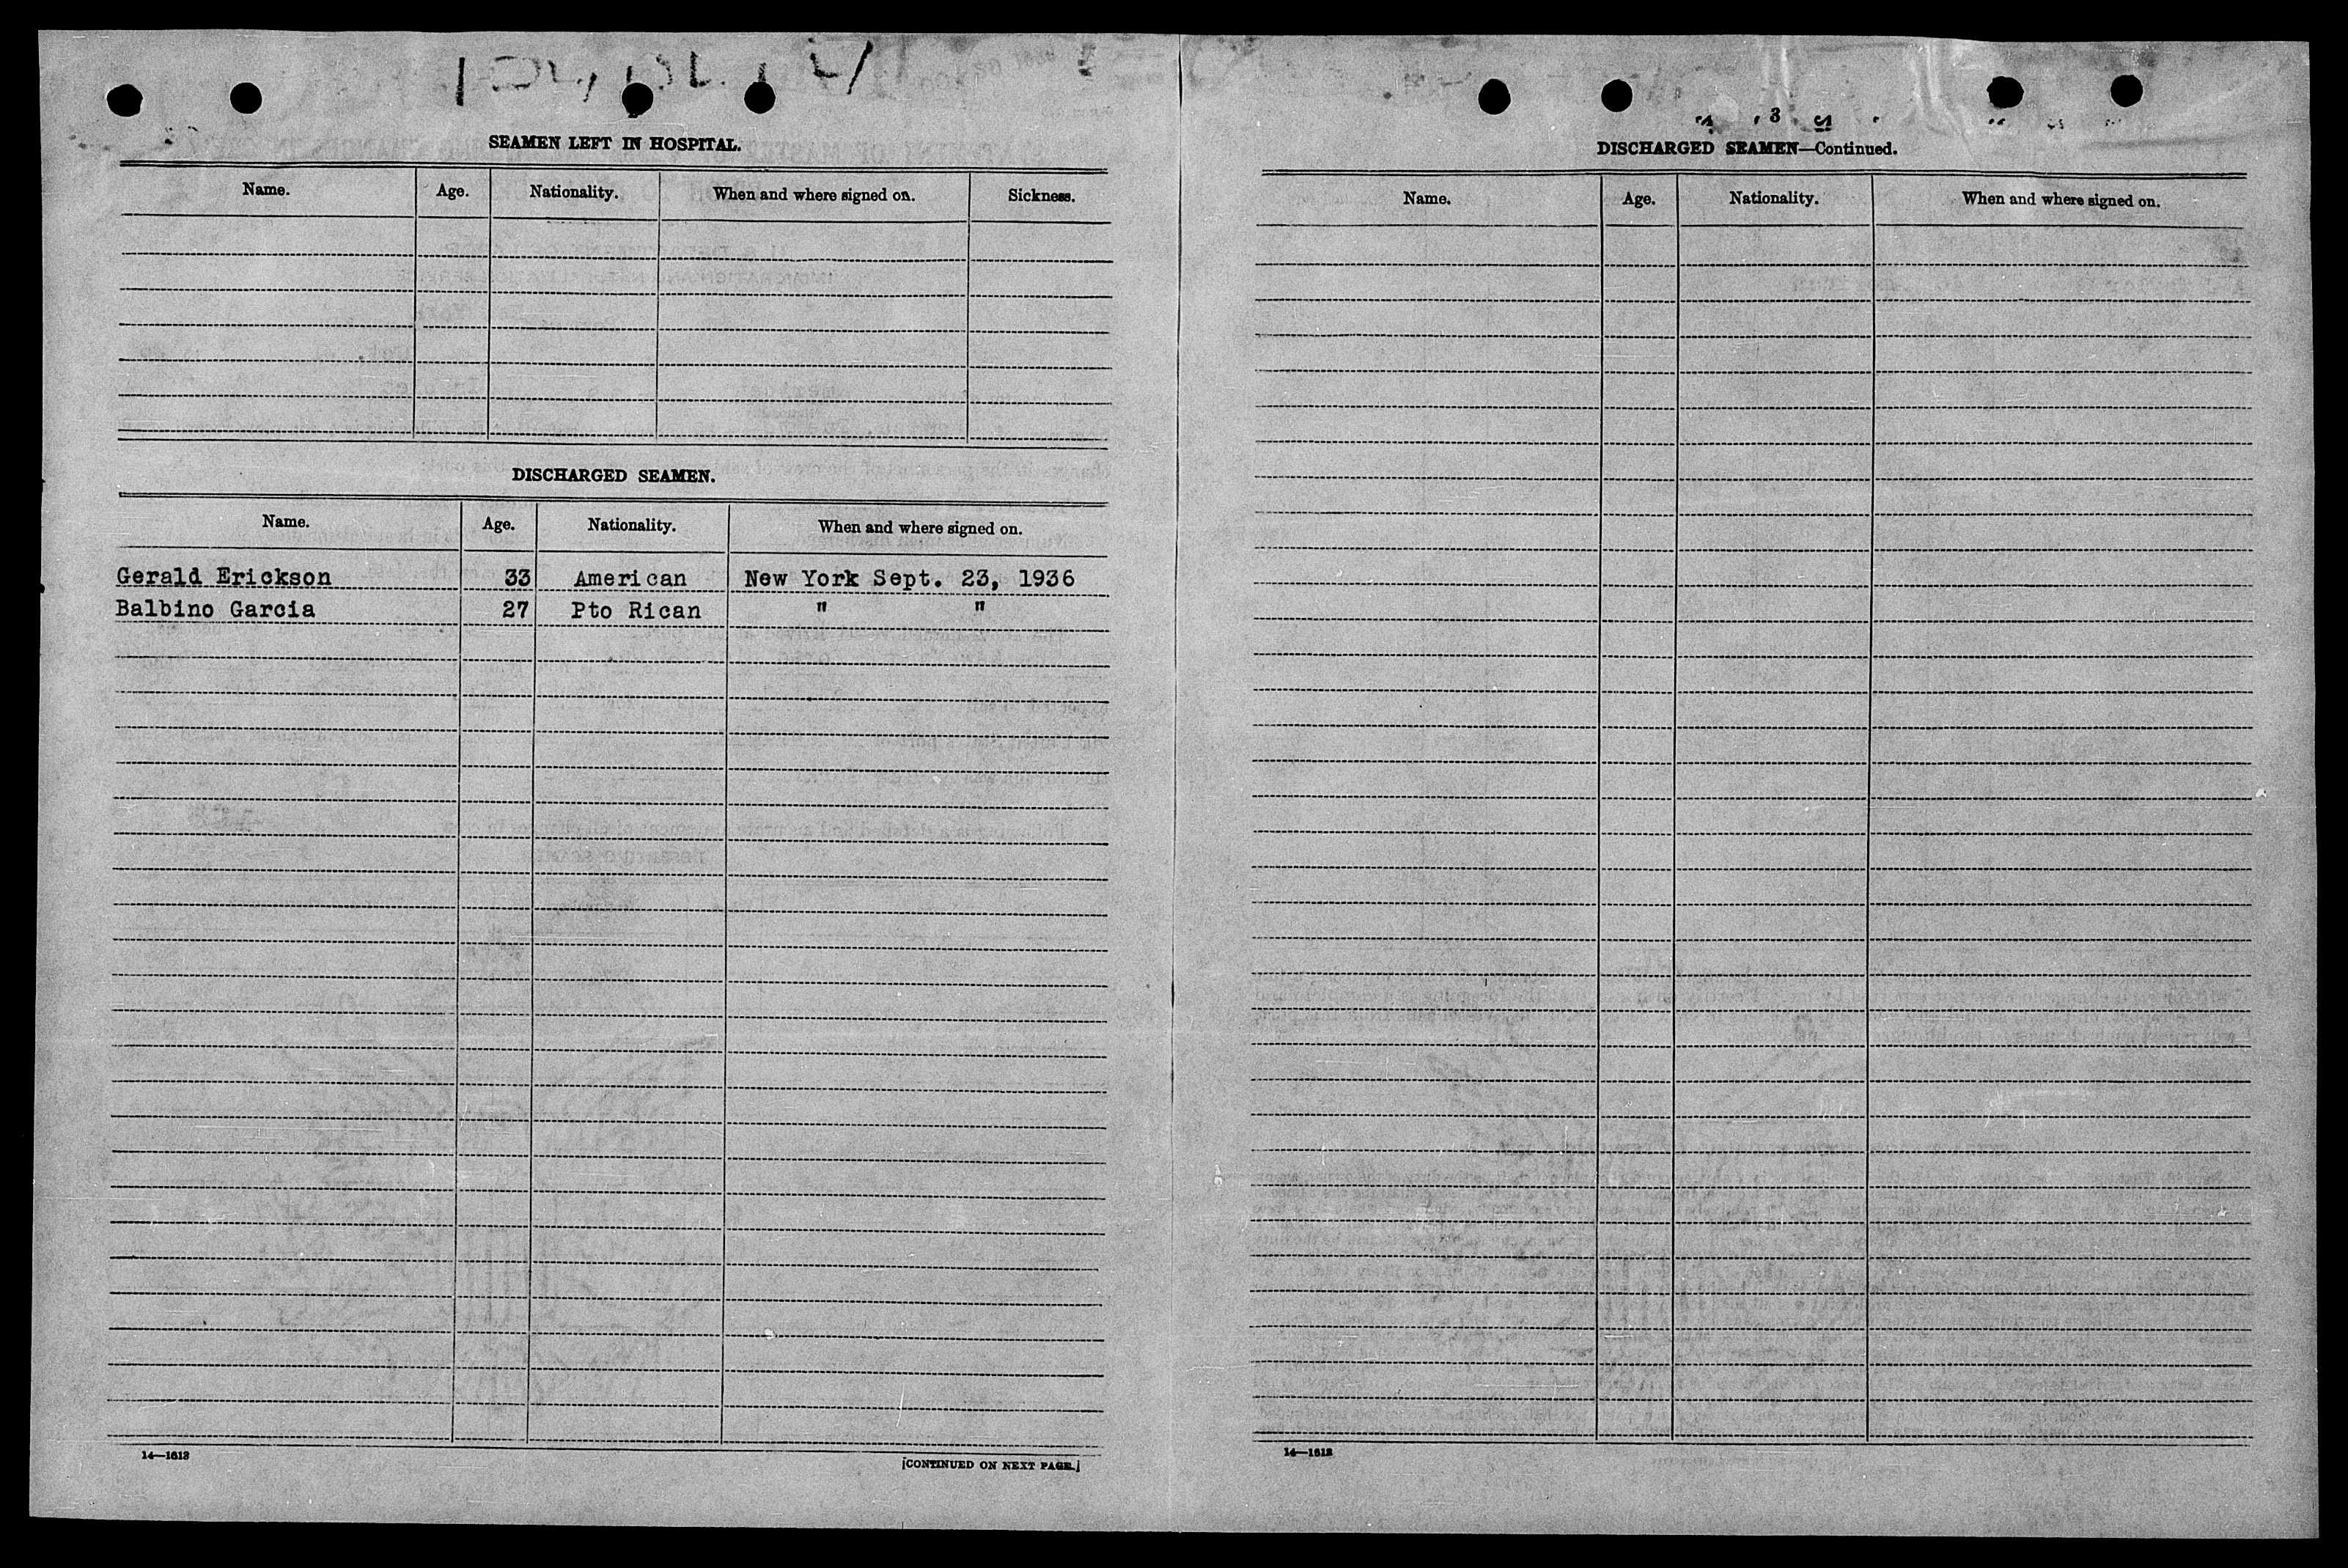 SEAMEN LEFT IN HOSPITAL.
Name. Age. Nationality. When and where signed on. Sickness.
DISCHARGED SEAMEN.
Name. Age. Nationality. When and where signed on.
Gerald Erickson 33 American New York Sept. 23, 1936
Balbino Garcia 27 Pto Rican " "
14—1613
[CONTINUED ON NEXT PAGE.]
3
DISCHARGED SEAMEN—Continued.
Name. Age. Nationality. When and where signed on.
14—1613